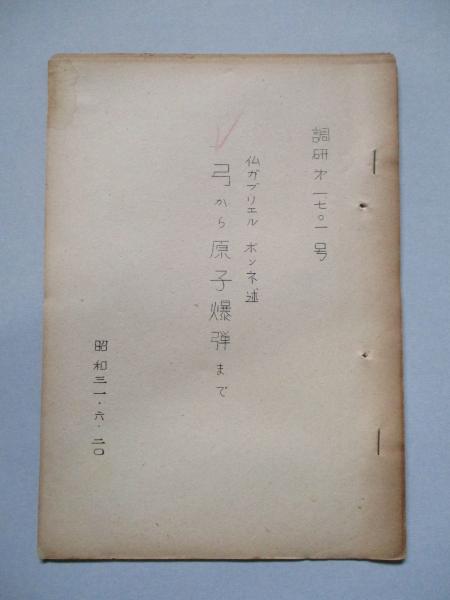 調研才一七〇一号
仏ガブリエル ボンネ述
弓から原子爆弾まで
昭和三一・六・二〇